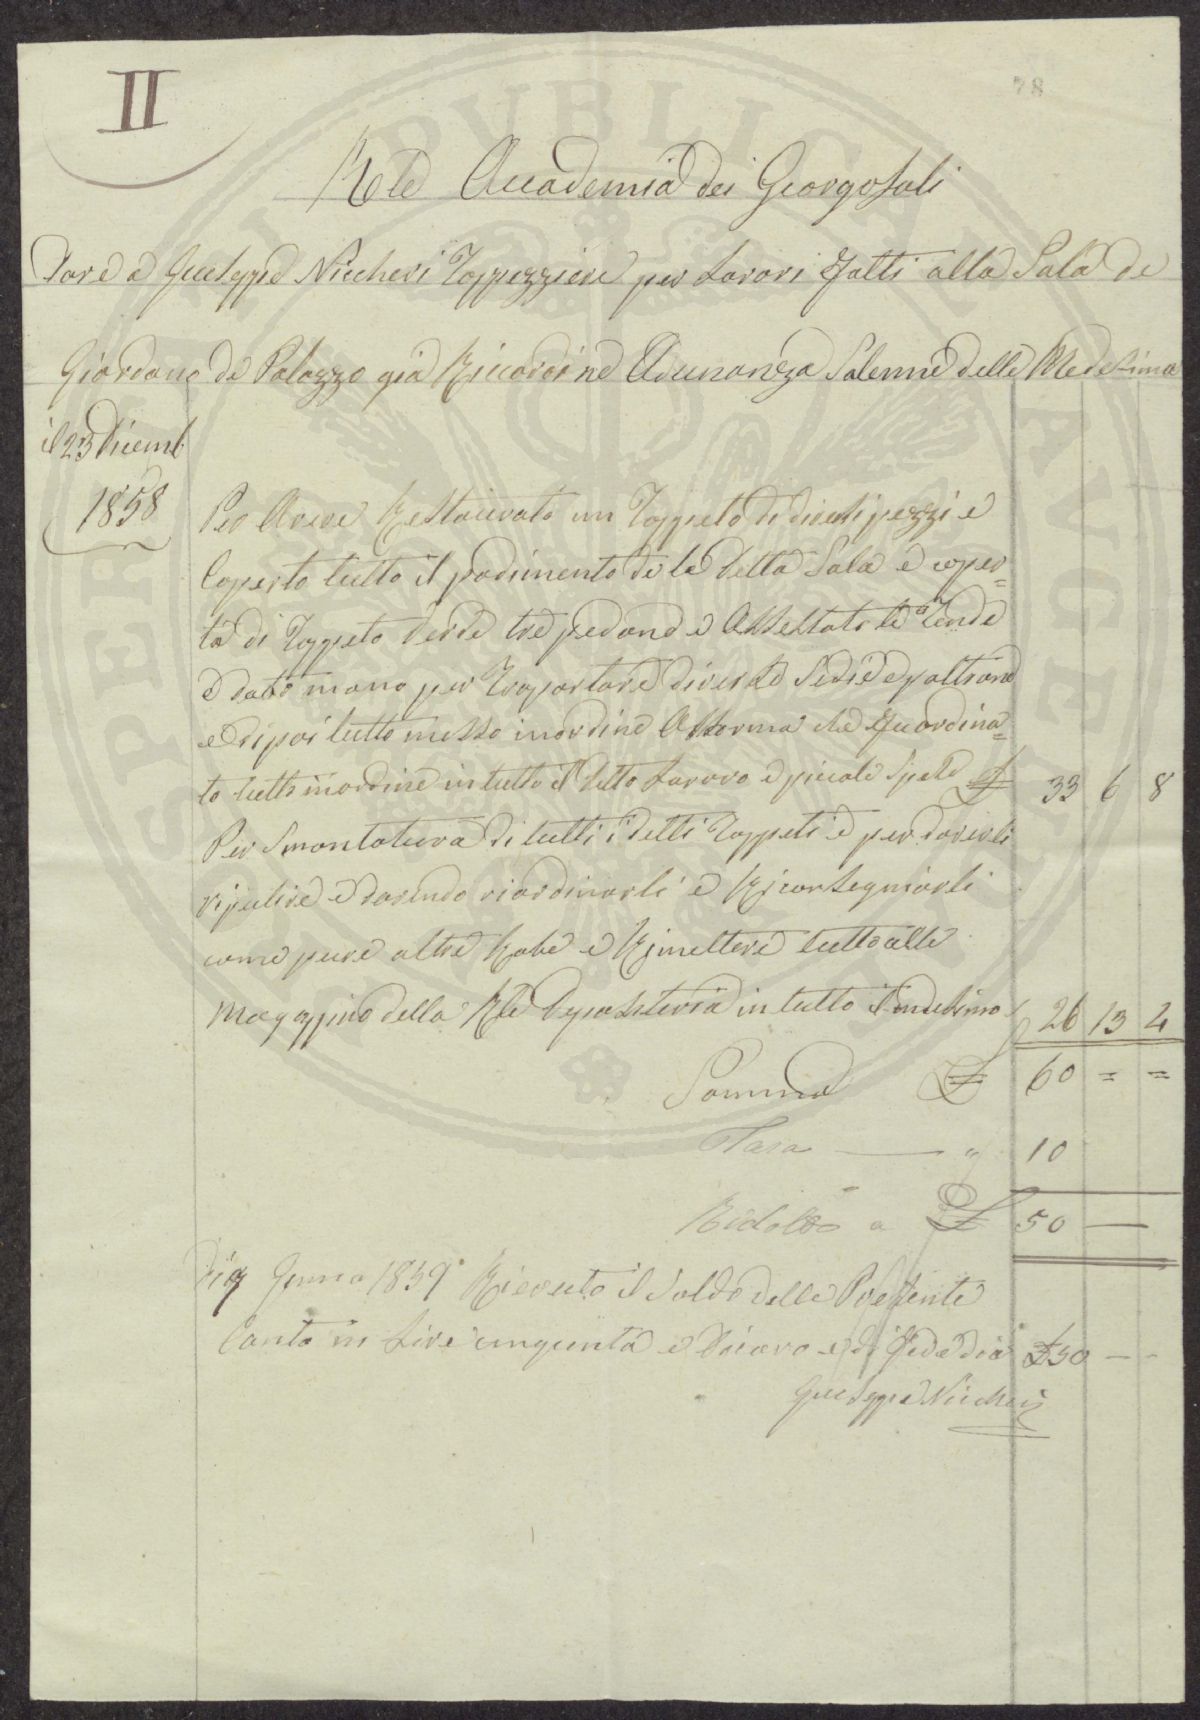 II
78
Rle Accademia dei Georgofali
Dare a Giuseppe Niccheri Tappezziere per Lavori Fatti alla Sala de
Giordano de Palazzo già Riccardi ne Adunanza Solenne della Medesima
il 23 Dicemb
1858
Per Avere Restaurato un Tappeto di diversi pezzi e
Coperto tutto il padimento de la detta Sala e coper=
ta di Tappeto Verde tre pedane e Assestato le Tende
e dato mano per Traportare diverse Sedie e poltrone
e di poi tutto messo inordine Afforma che Fu ordina=
to tutto inordine in tutto il detto Lavoro e piccole Spese £ 33 6 8
Per Smontatura di tutti i detti Tappeti e per doverli
ripulire e dovendo riordinarli e Riconsegniarli
come pure altre Robe e Rimettere tutto alle
Magazzino della Rle Depositeria in tutto il medesimo £ 26 13 4
Somma £ 60 = =
Tara — " 10
Ridotto a £ 50 —
Di 9 Genna 1859 Ricevuto il Saldo della Presente
Conto in Lire cinquanta e Dicavo e di Fede dico £ 50 — -
Giuseppe Niccheri